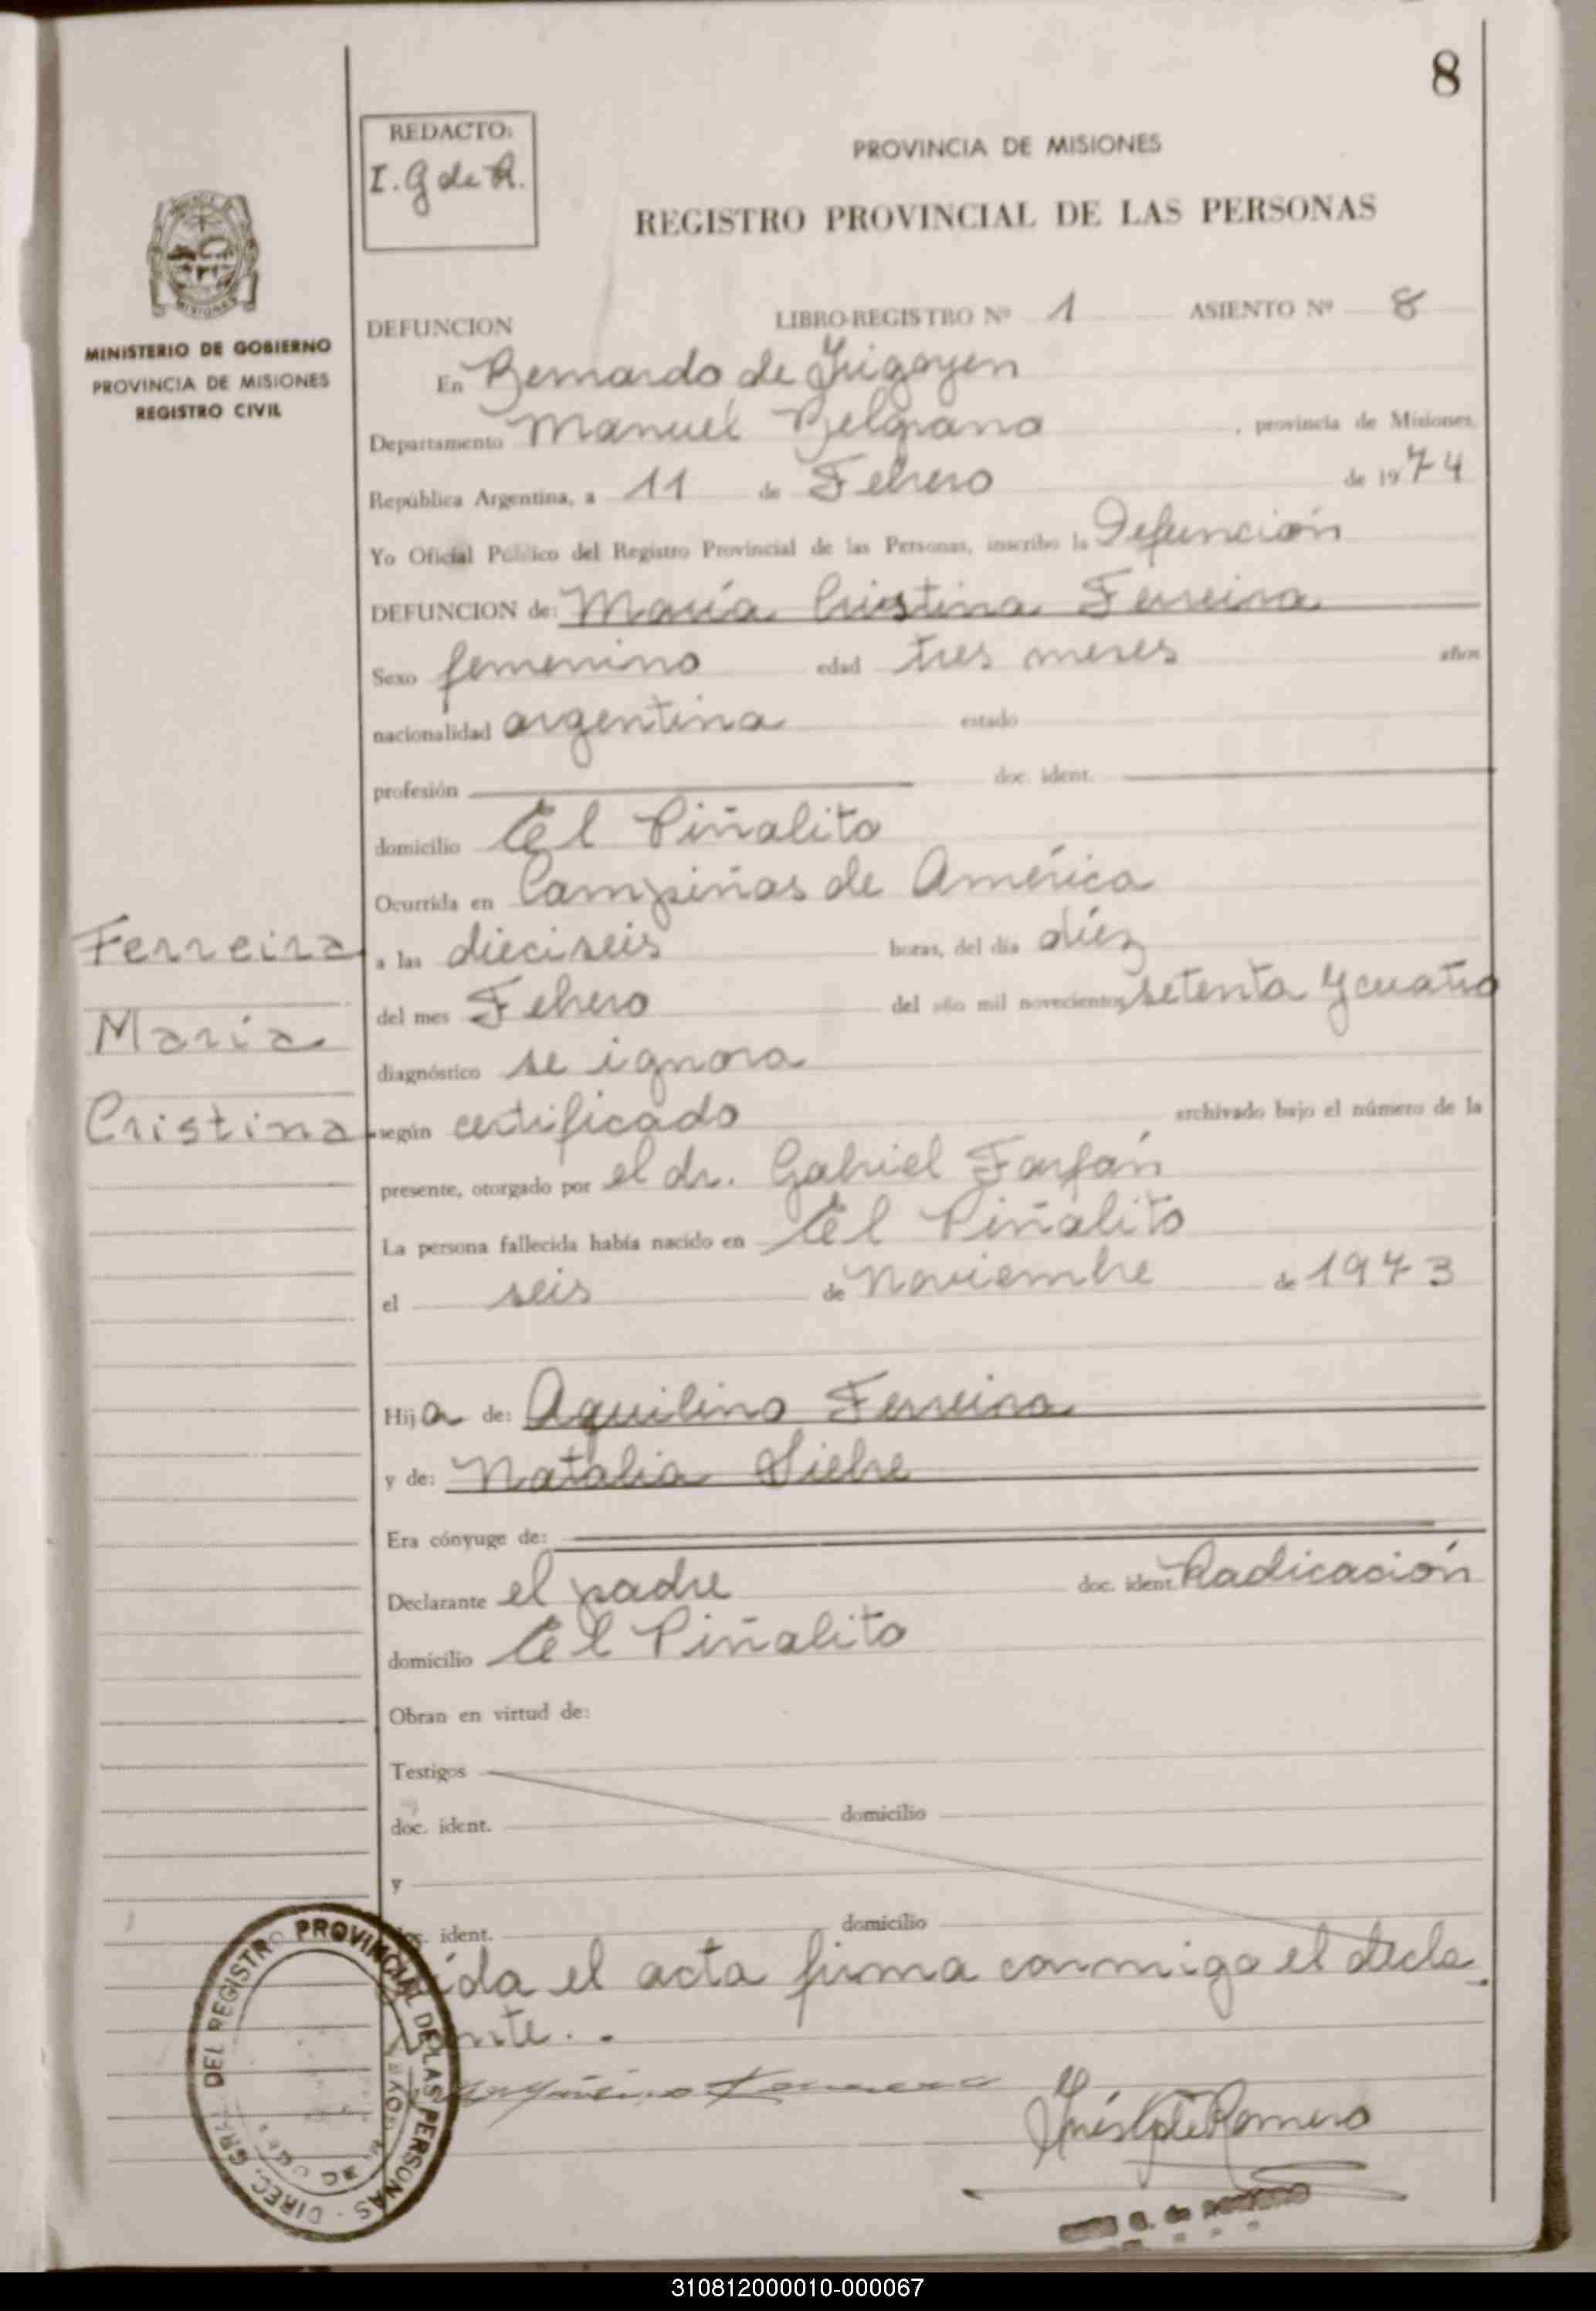 8
REDACTO:
I. G de R.
PROVINCIA DE MISIONES
REGISTRO PROVINCIAL DE LAS PERSONAS
MINISTERIO DE GOBIERNO
PROVINCIA DE MISIONES
REGISTRO CIVIL
DEFUNCION LIBRO-REGISTRO Nº 1 ASIENTO Nº 8
En Bernardo de Irigoyen
Departamento Manuel Belgrano, provincia de Misiones,
República Argentina, a 11 de Febrero de 1974
Yo Oficial Público del Registro Provincial de las Personas, inscribo la Defunción
DEFUNCION de: María Cristina Ferreira
Sexo femenino edad tres meses años
nacionalidad argentina estado
profesión doc. ident.
domicilio El Piñalito
Ocurrida en Campiñas de América
a las dieciseis horas, del día diéz
del mes Febrero del año mil novecientos setenta y cuatro
diagnóstico se ignora
según certificado archivado bajo el número de la
presente, otorgado por el dr. Gabriel Farfán
La persona fallecida había nacido en El Piñalito
el seis de Noviembre de 1973
Ferreira
María
Cristina
Hija de: Aquilino Ferreira
y de: Natalia Siebre
Era cónyuge de:
Declarante el padre doc. ident. Radicación
domicilio El Piñalito
Obran en virtud de:
Testigos
doc. ident. domicilio
y
ident. domicilio
ida el acta firma conmigo el decla
rante..
Inés G de Romero
DIREC. GRAL. DEL REGISTRO PROVINCIAL DE LAS PERSONAS
310812000010-000067